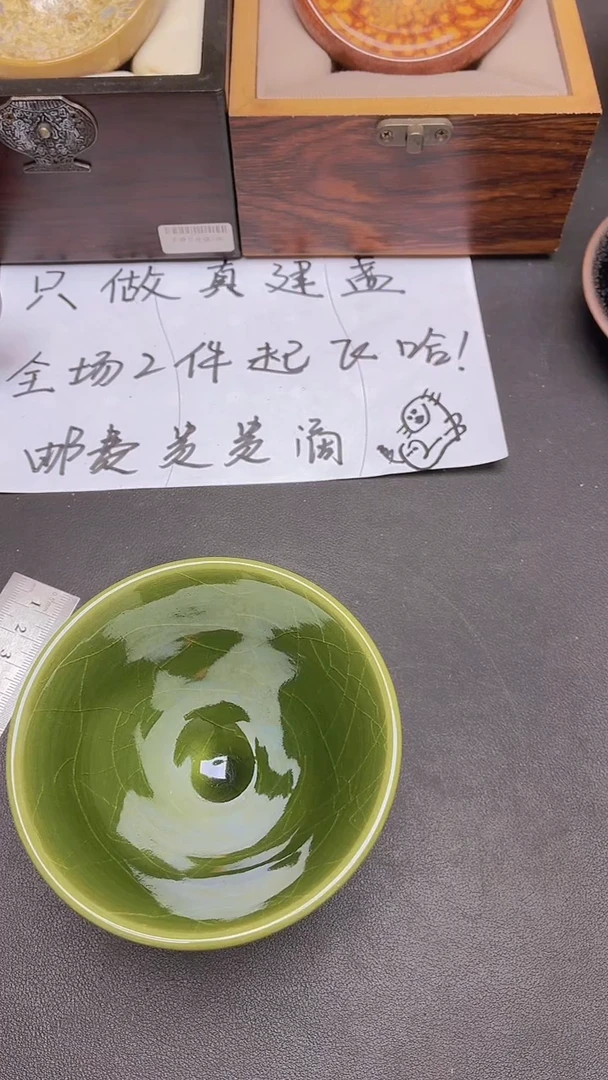 只做真建盏
全场2件起飞哈!
邮费是是滴
1
2
3